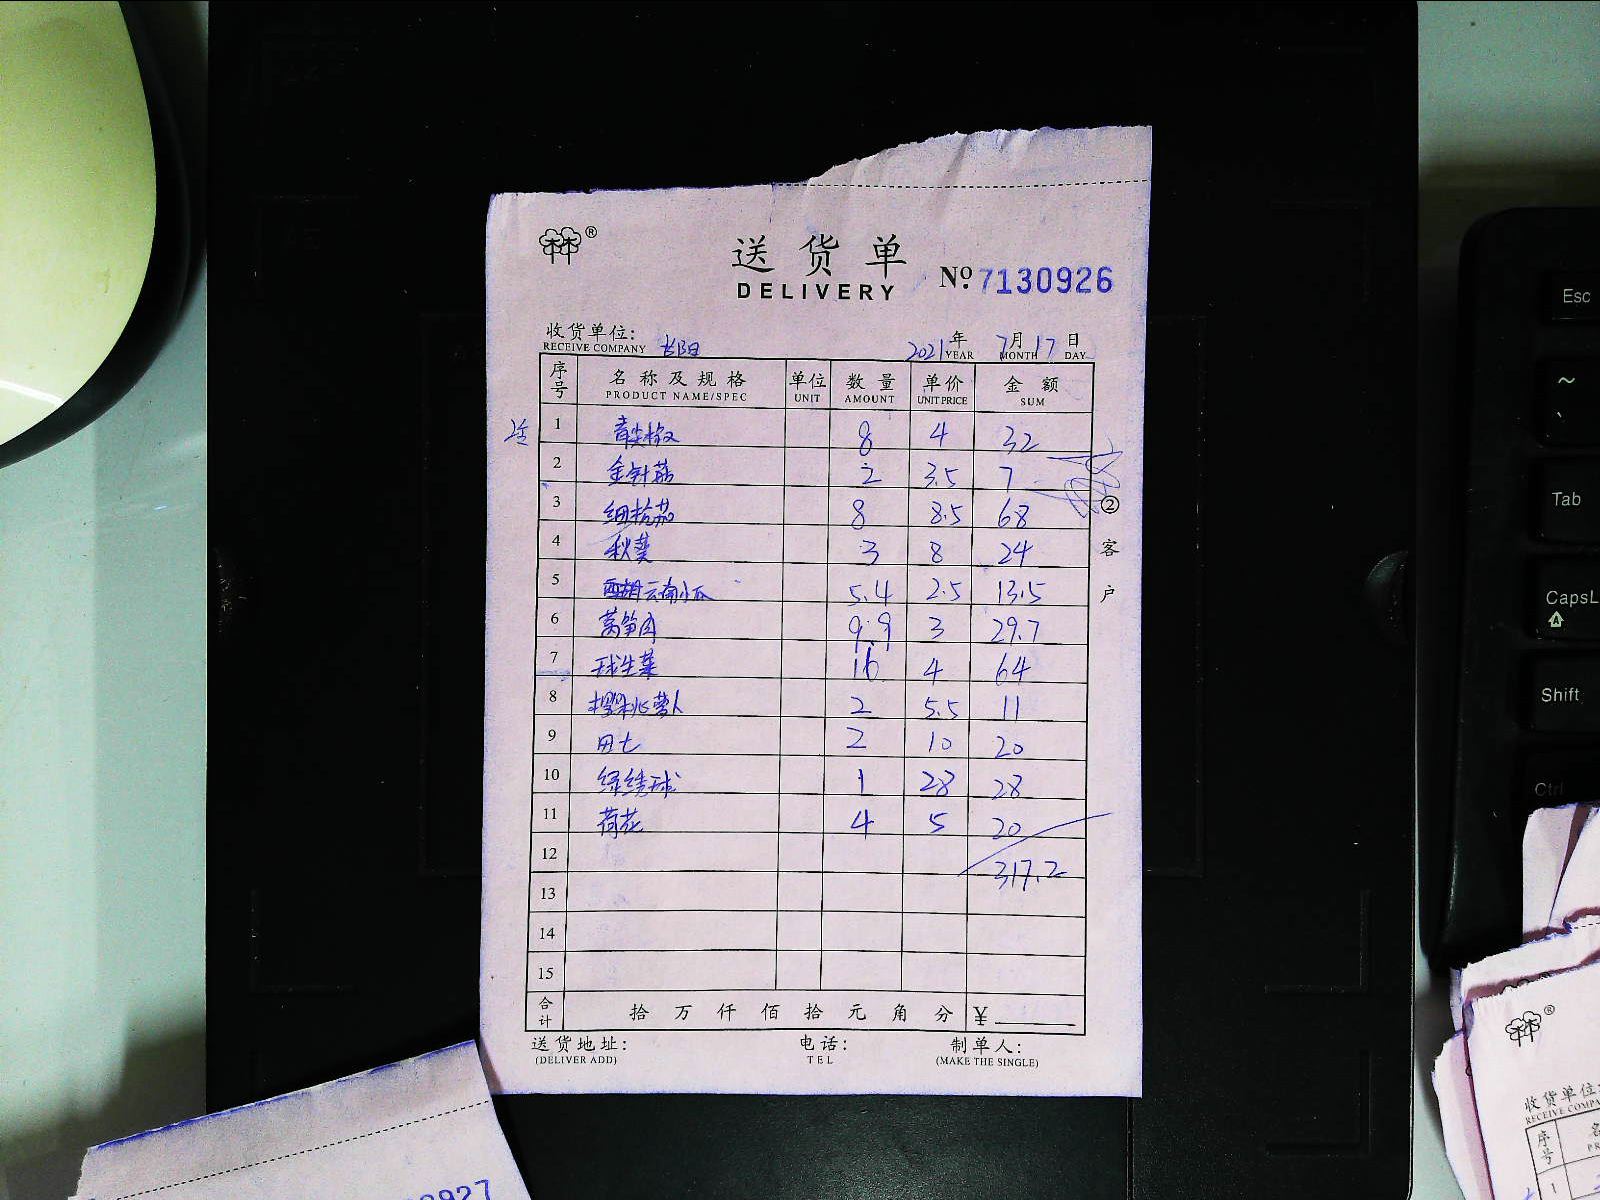 林®
送货单
DELIVERY
№ 7130926
收货单位:
RECEIVE COMPANY
2021年 7月17日
YEAR MONTH DAY
序号 名称及规格 单位 数量 单价 金额
PRODUCT NAME/SPEC UNIT AMOUNT UNIT PRICE SUM
1 青尖椒 8 4 32
2 金针菇 2 3.5 7
3 细杭茄 8 8.5 68
4 秋葵 3 8 24
5 云南小瓜 5.4 2.5 13.5
6 莴笋肉 9.9 3 29.7
7 球生菜 16 4 64
8 樱桃萝卜 2 5.5 11
9 田七 2 10 20
10 绿绣球 1 28 28
11 荷花 4 5 20
12 317.2
13
14
15
合计 拾 万 仟 佰 拾 元 角 分 ¥
送货地址: 电话: 制单人:
(DELIVER ADD) TEL (MAKE THE SINGLE)
②客户
Esc
~
Tab
CapsL
Shift
Ctrl
0927
®
收货单位
RECEIVE COMPA
序号
1